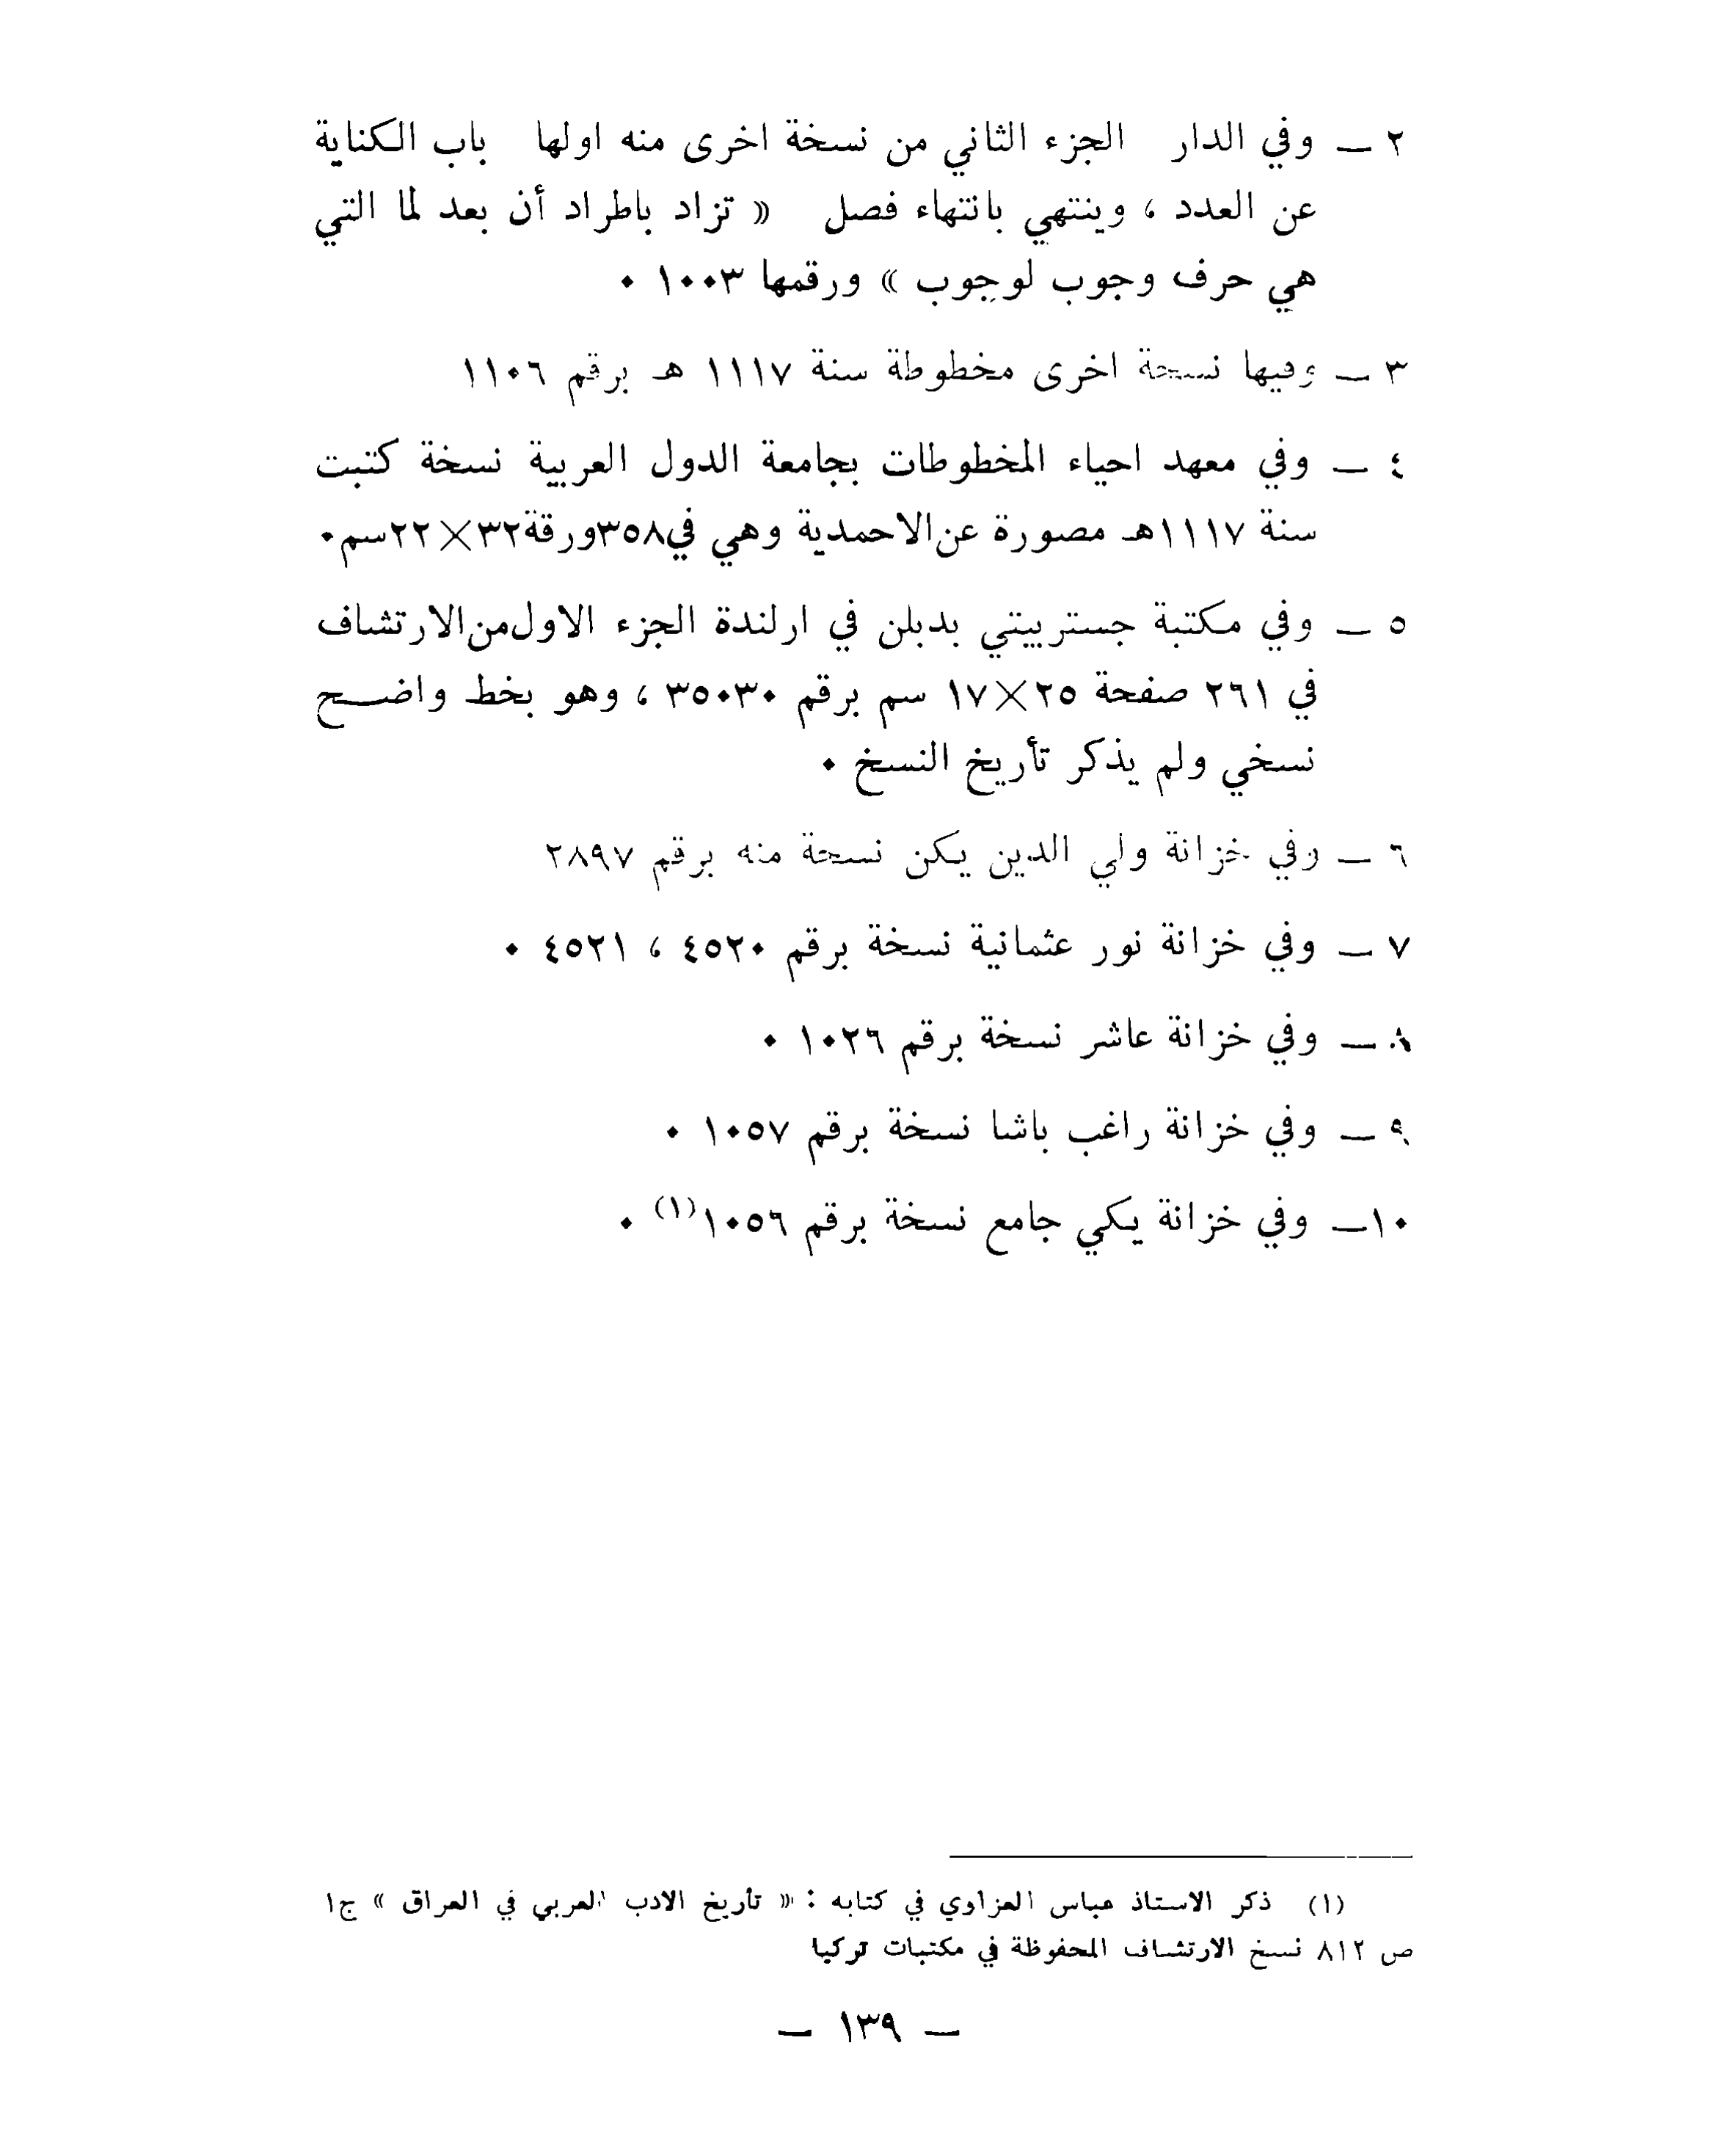 ٢ — وفي الدار الجزء الثاني من نسخة اخرى منه اولها باب الكناية
عن العدد ، وينتهي بانتهاء فصل « تزاد باطراد أن بعد لما التي
هي حرف وجوب لوجوب » ورقمها ١٠٠٣ ٠
٣ — وفيها نسخة اخرى مخطوطة سنة ١١١٧ هـ برقم ١١٠٦
٤ — وفي معهد احياء المخطوطات بجامعة الدول العربية نسخة كتبت
سنة ١١١٧هـ مصورة عن الاحمدية وهي في ٣٥٨ ورقة ٣٢×٢٢سم ٠
٥ — وفي مكتبة جستربيتي بدبلن في ارلندة الجزء الاول من الارتشاف
في ٢٦١ صفحة ٢٥×١٧ سم برقم ٣٥٠٣٠ ، وهو بخط واضـــح
نسخي ولم يذكر تأريخ النسخ ٠
٦ — وفي خزانة ولي الدين يكن نسخة منه برقم ٢٨٩٧
٧ — وفي خزانة نور عثمانية نسخة برقم ٤٥٢٠ ، ٤٥٢١ ٠
٨ — وفي خزانة عاشر نسخة برقم ١٠٢٦ ٠
٩ — وفي خزانة راغب باشا نسخة برقم ١٠٥٧ ٠
١٠— وفي خزانة يكي جامع نسخة برقم ١٠٥٦(١) ٠
(١) ذكر الاستاذ عباس العزاوي في كتابه : « تأريخ الادب العربي في العراق » ج١
ص ٨١٢ نسخ الارتشاف المحفوظة في مكتبات تركيا
— ١٣٩ —